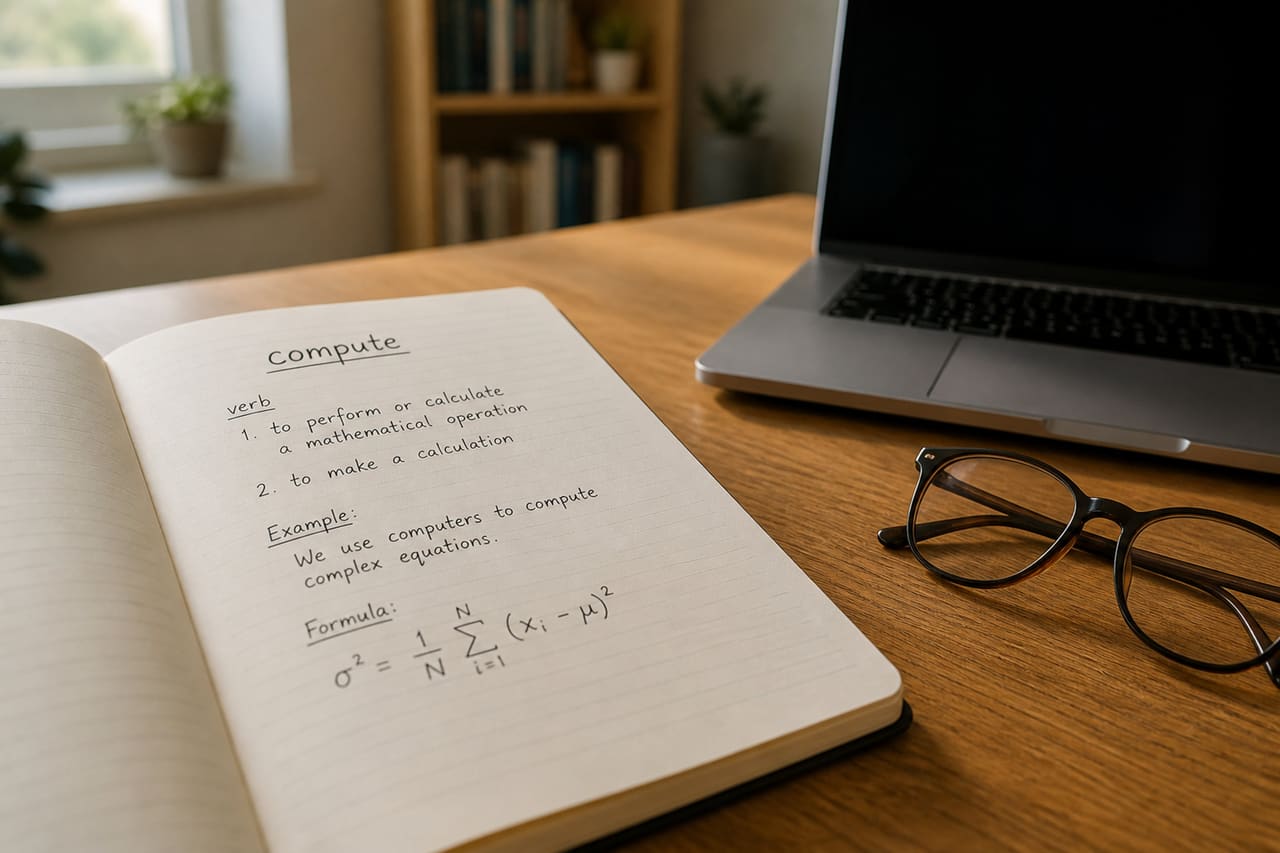 compute
verb
1. to perform or calculate
a mathematical operation
2. to make a calculation
Example:
We use computers to compute
complex equations.
Formula:
σ² = 1/N ∑ᵢ₌₁ᴺ (xᵢ - μ)²